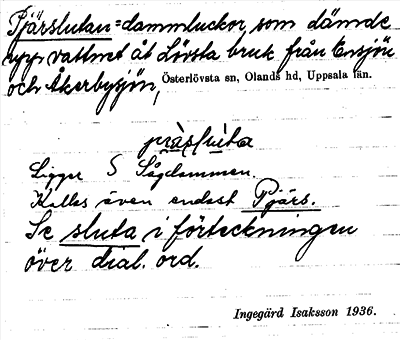 Pjärslutan = dammluckor, som dämde
upp vattnet åt Lövsta bruk från Ensjön
och Åkerbysjön, Österlövsta sn, Olands hd, Uppsala län.
Ligger S Sågdammen.
Kallas även endast Pjärs.
Se sluta i förteckningen
över dial. ord.
Ingegärd Isaksson 1936.